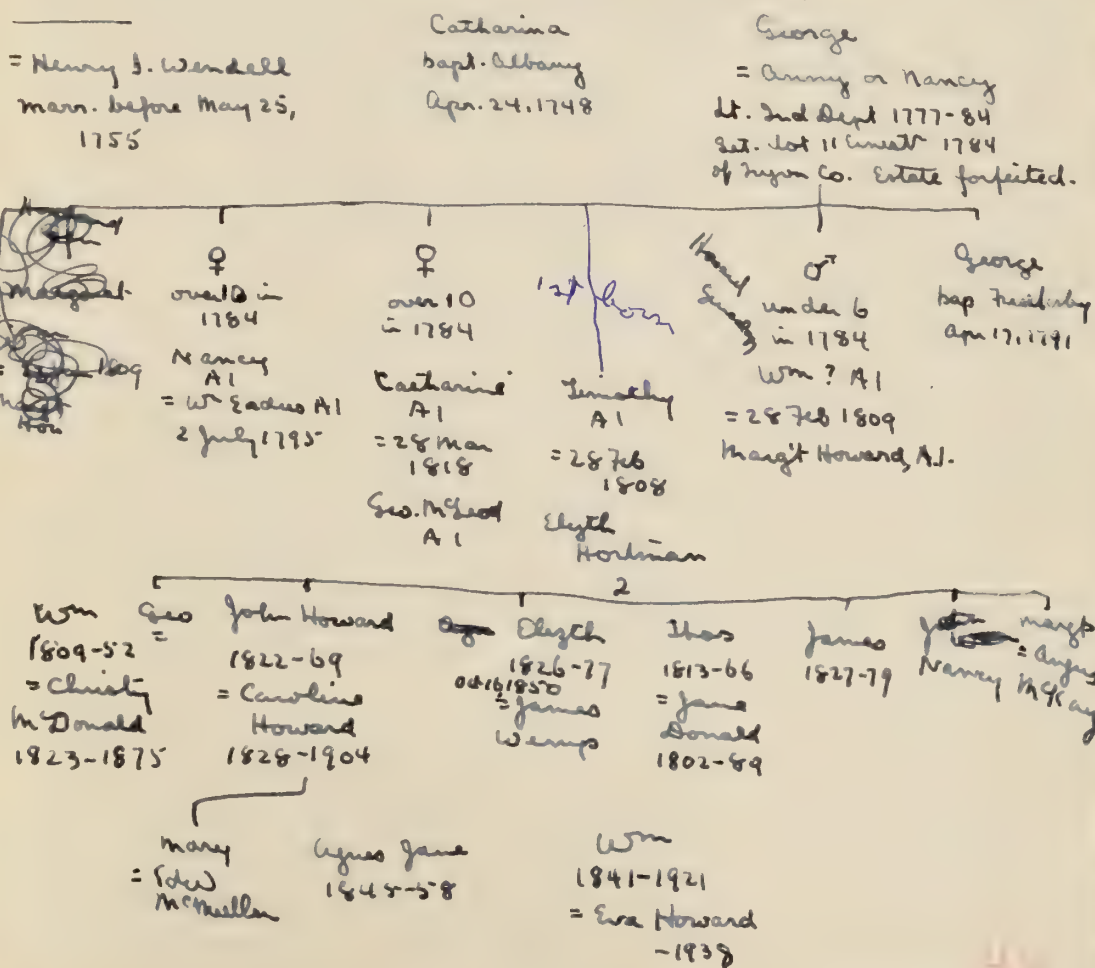 = Henry I. Wendell
marr. before May 25,
1755
Catharina
bapt. Albany
Apr. 24, 1748
George
= Anny or Nancy
Lt. Ind Dept 1777-84
Set. lot 11 1784
of Tryon Co. Estate forfeited.
Margaret
1809
Margt
How
♀
over 10 in
1784
Nancy
A I
= Wm Eadus A I
2 July 1795
♀
over 10
in 1784
Catharine
A I
= 28 Mar
1818
Geo. McLeod
A I
1st born
Timothy
A I
= 28 Feb
1808
Elizth
Hortman
♂
under 6
in 1784
Wm ? A I
= 28 Feb 1809
Marg't Howard, A.I.
George
bap
Apr 17, 1791
2
Wm
1809-52
= Christy
McDonald
1823-1875
Geo
=
John Howard
1822-69
= Caroline
Howard
1828-1904
Elizth
1826-77
Oct 16 1850
= James
Wemp
Thos
1813-66
= Jane
Donald
1802-89
James
1827-79
Nancy
Margt
= Angus
McKay
Mary
= Edw
McMullen
Agnes Jane
1845-58
Wm
1841-1921
= Eva Howard
-1938